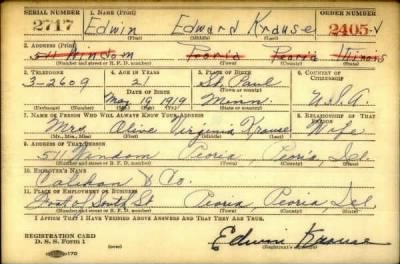 SERIAL NUMBER 1. Name (Print) ORDER NUMBER
2717 Edwin Edward Krause 2405-V
(First) (Middle) (Last)
2. Address (Print)
511 Windom Peoria Peoria Illinois
(Number and street or R. F. D. number) (Town) (County) (State)
3. Telephone 4. Age in Years 5. Place of Birth 6. Country of Citizenship
3-2609 21 St. Paul
Date of Birth (Town or county)
May 19 1919 Minn. U.S.A.
(Mo.) (Day) (Yr.) (State or country)
7. Name of Person Who Will Always Know Your Address 8. Relationship of That Person
Mrs. Olive Virginia Krause Wife
(Mr., Mrs., Miss) (First) (Middle) (Last)
9. Address of That Person
511 Windom Peoria, Peoria, Ill.
(Number and street or R. F. D. number) (Town) (County) (State)
10. Employer's Name
& Co.
11. Place of Employment or Business
Foot of South St. Peoria, Peoria, Ill.
(Number and street or R. F. D. number) (Town) (County) (State)
I Affirm That I Have Verified Above Answers and That They Are True.
REGISTRATION CARD
D. S. S. Form 1 Edwin Krause
(Registrant's signature)